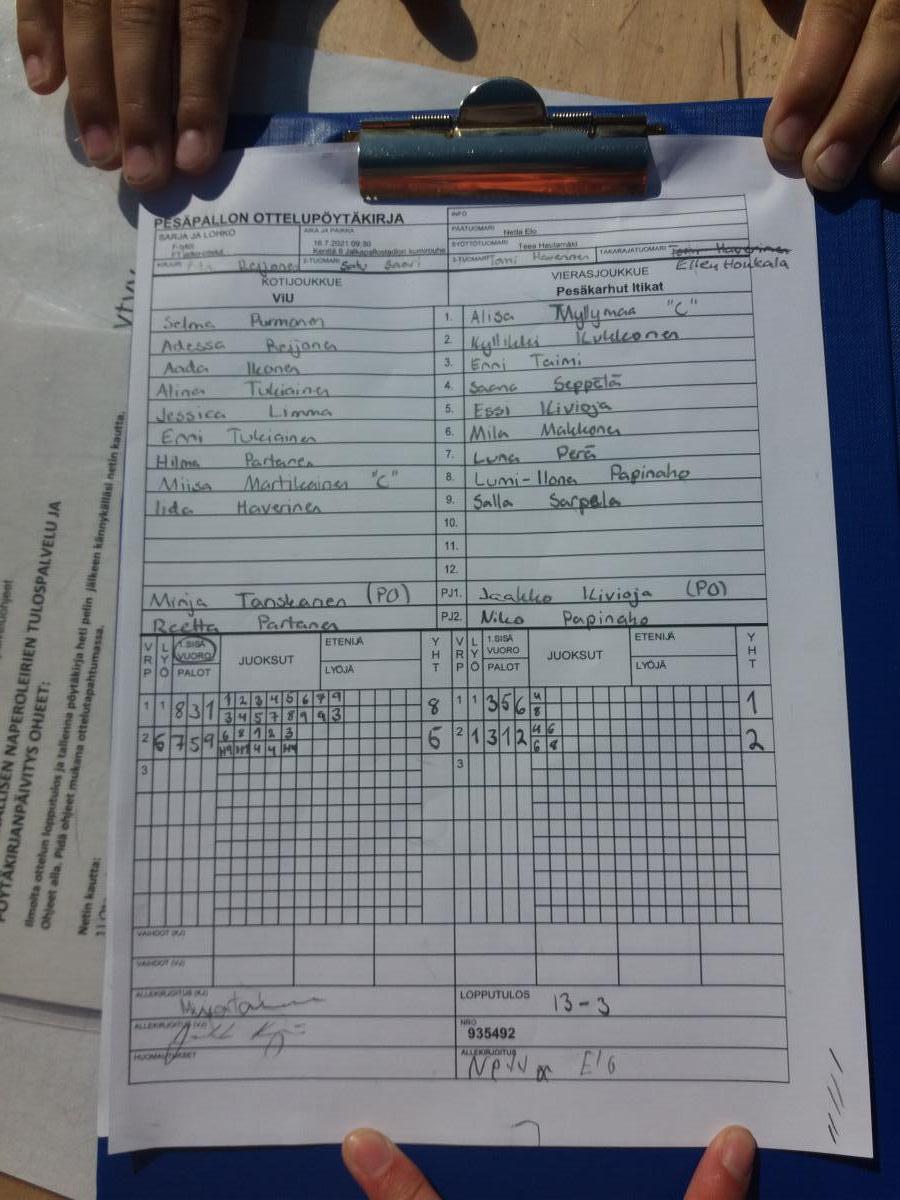 PESÄPALLON OTTELUPÖYTÄKIRJA
INFO
SARJA JA LOHKO
AIKA JA PAIKKA
16.7.2021 09:30
PÄÄTUOMARI Netla Elo
SYÖTTÖTUOMARI Teea Hautamäki
TAKARAJATUOMARI Tomi Haverinen
Ellen Honkala
KIRJURI Reijonen
2-TUOMARI Satu Saari
3-TUOMARI Tomi Haverinen
KOTIJOUKKUE
ViU
VIERASJOUKKUE
Pesäkarhut Itikat
Selma Purmonen 1. Alisa Myllymaa "C"
Adessa Reijonen 2. Kyllikki Kukkonen
Aada Ikonen 3. Enni Taimi
Alina Tukiainen 4. Saana Seppälä
Jessica Limma 5. Essi Kivioja
Enni Tukiainen 6. Mila Makkonen
Hilma Partanen 7. Luna Perä
Miisa Martikainen "C" 8. Lumi-Ilona Papinaho
Iida Haverinen 9. Salla Sarpela
10.
11.
12.
Minja Tanskanen (PO) PJ1. Jaakko Kivioja (PO)
Reetta Partanen PJ2. Niko Papinaho
VRP LYÖ 1.SISÄ VUORO PALOT JUOKSUT ETENIJÄ LYÖJÄ YHT VRP LYÖ 1.SISÄ VUORO PALOT JUOKSUT ETENIJÄ LYÖJÄ YHT
1 1 8 3 1 1 2 3 4 5 6 7 9 8 1 1 3 5 6 4 1
3 4 5 7 8 9 9 3 8
2 6 7 5 9 6 8 1 2 3 2 1 3 1 2 4 6 2
4 4 6 8
3 3
VAIHDOT (KJ)
VAIHDOT (VJ)
ALLEKIRJOITUS (KJ)
LOPPUTULOS 13-3
ALLEKIRJOITUS (VJ)
NRO
935492
HUOMAUTUKSET
ALLEKIRJOITUS
Elo
PÖYTÄKIRJANPÄIVITYS OHJEET:
NAPEROLEIRIEN TULOSPALVELU JA
Ilmoita ottelun lopputulos ja tallenna pöytäkirja heti pelin jälkeen kännykälläsi netin kautta.
Ohjeet alla. Pidä ohjeet mukana ottelutapahtumassa.
Netin kautta: